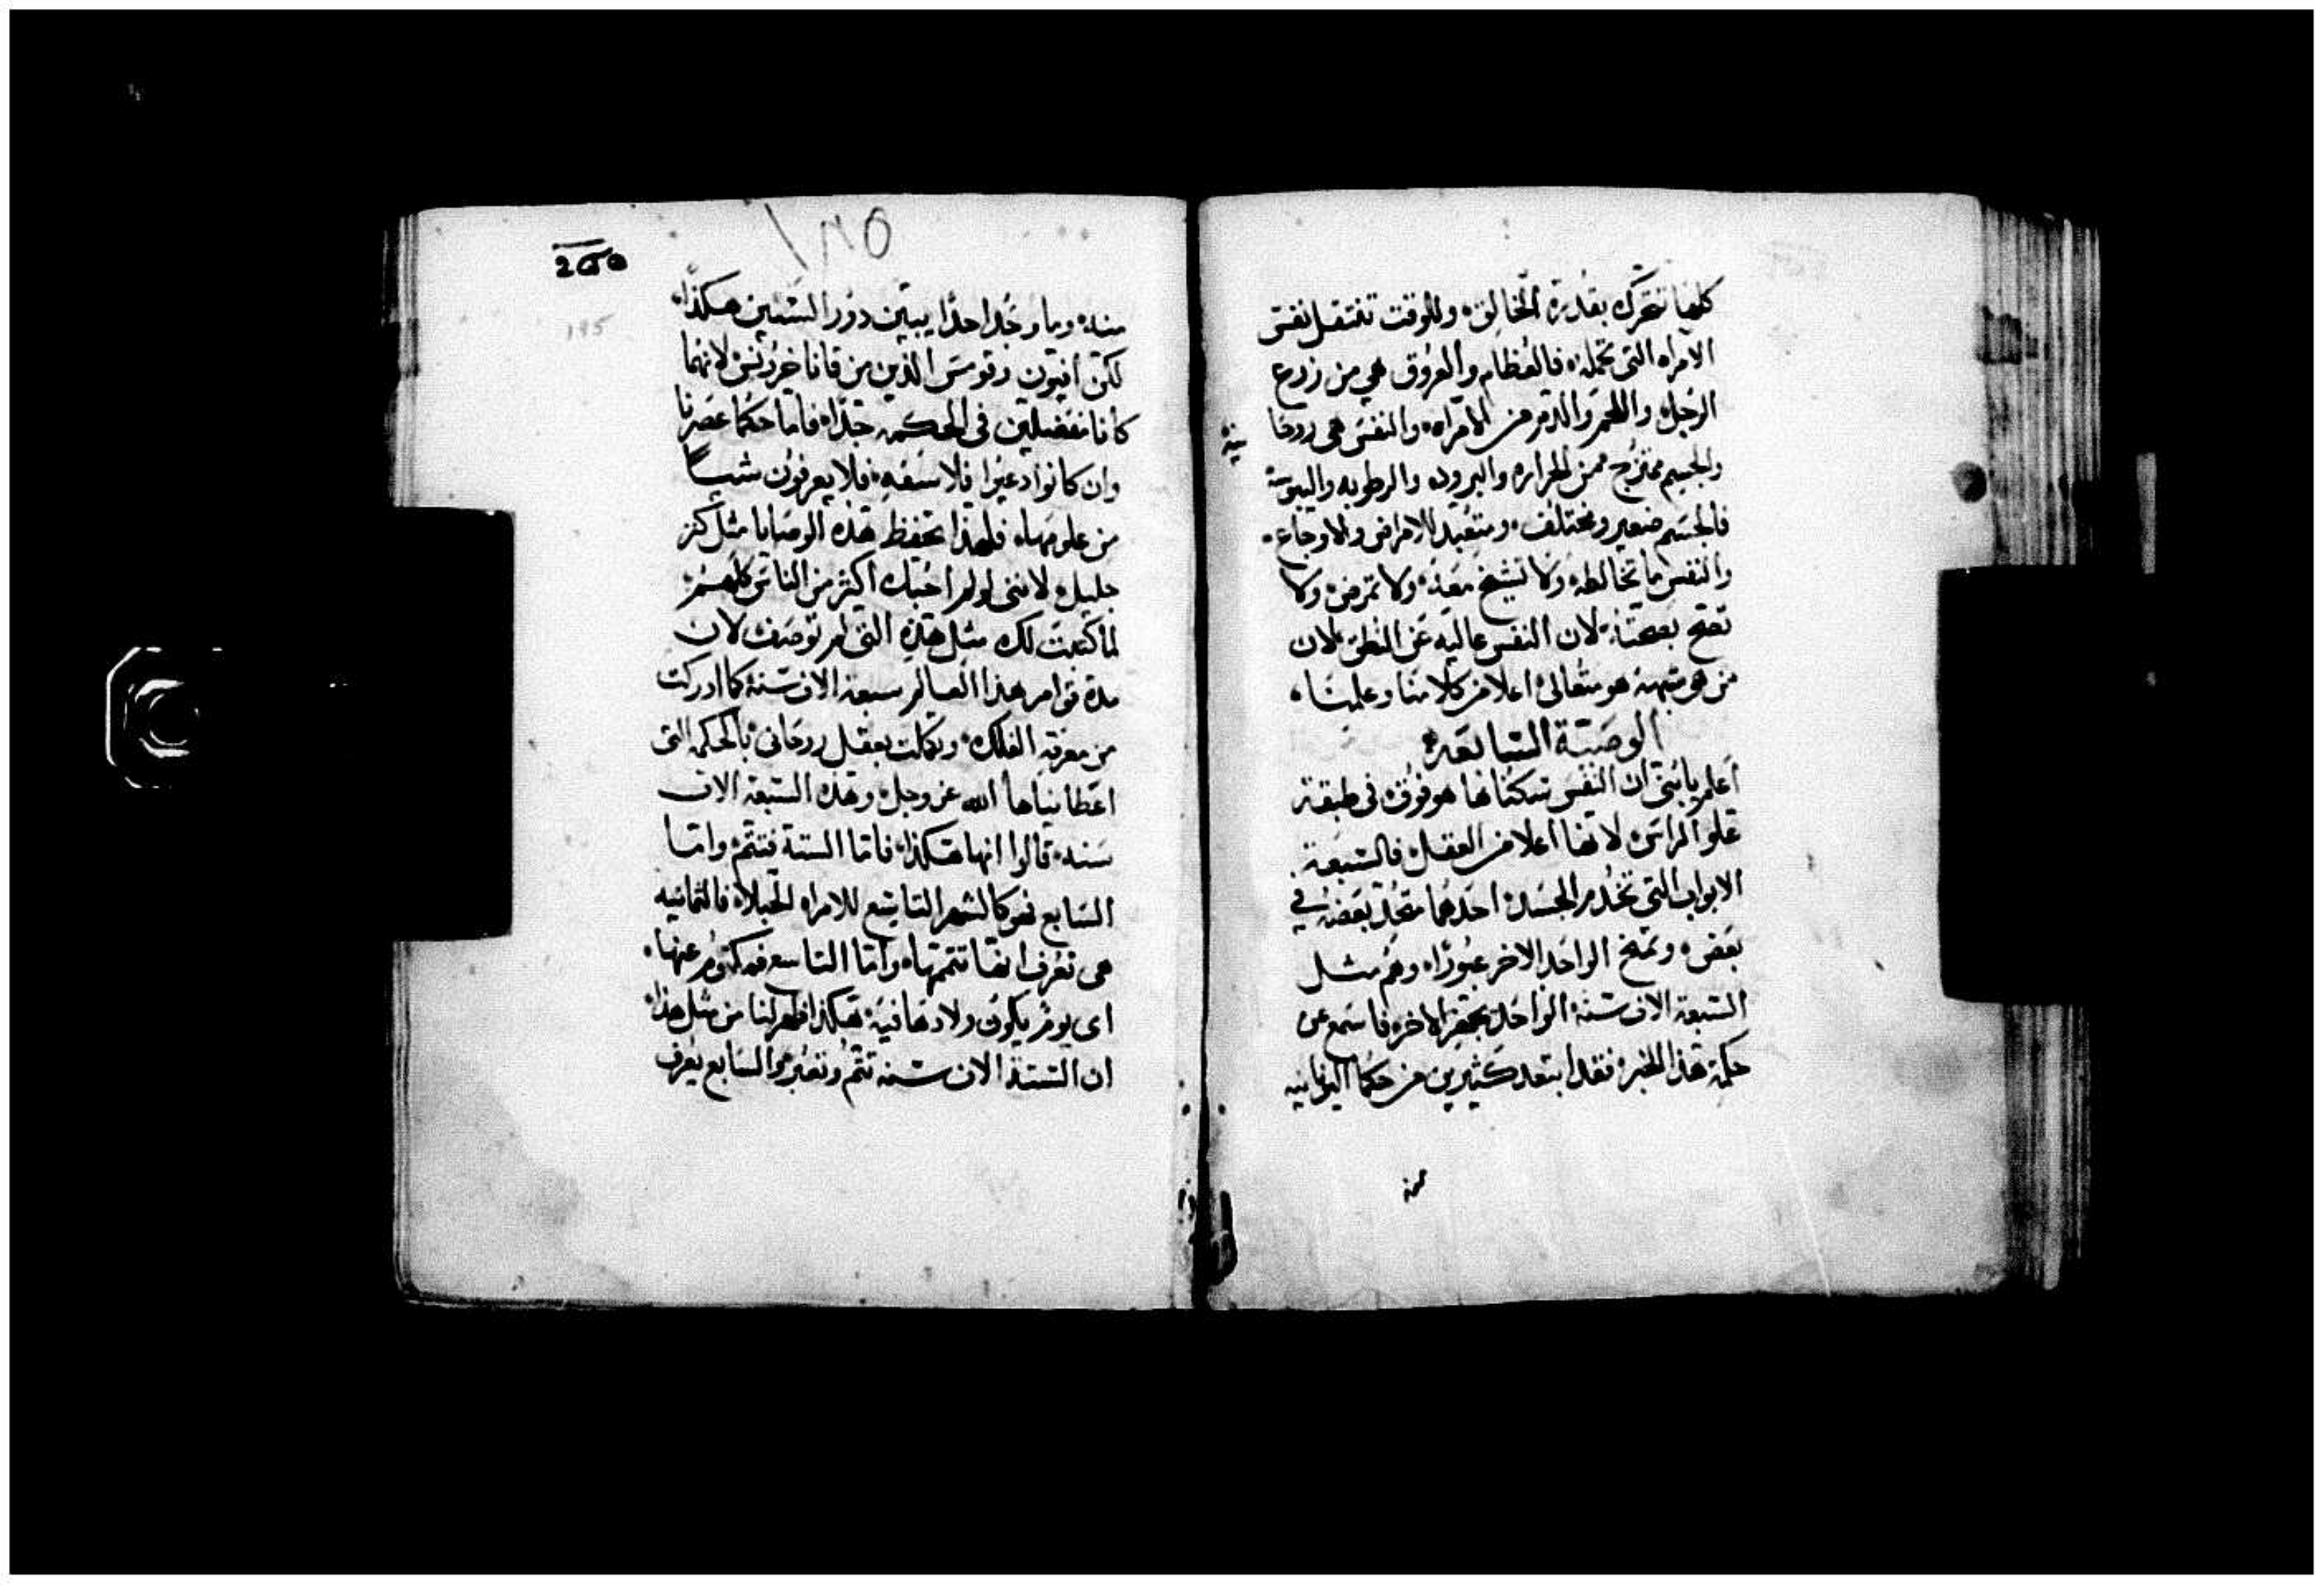 كلها تتحرك بقدرة الخالق، وللوقت تنتقل نفس
الامراه التى تحمله، فالعظام والعروق هي من زرع
الرجل، واللحم والدم من الامراه، والنفس هى روحا
نيه
والجسم ممتزج من الحراره والبروده والرطوبه واليبوسة
فالجسم ضعيف ومختلف، ومتعبد للامراض والاوجاع،
والنفس ما تخالطه، ولا تشيخ معه، ولا تمرض، ولا
تصح بصحته، لان النفس عاليه عن النطق، لان
من هو شبهه هو متعالى اعلا من كلامنا وعلمنا،
الوصيّة السابعه
اعلم يا بنى ان النفس سكناها هو فوق فى طبقة
علو الراس، لانها اعلا من العقل، فالسبعة
الابواب التى تخدم الجسد، احدهما متحد بعضه في
بعض، وتمنح الواحد الاخر عبورًا، وهم مثل
السبعة الاف سنة، الواحد يحفز الاخر، فاسمع عن
حكمة هذا الخبر، فقد ابتعد كثيرين من حكما اليونانيه
منه
منه، وما وجد احدًا يبيّن دور السنين هكذا،
لكن افيون وقوس الذين من قانا خرونس، لانهما
كانا متفضلين فى الحكمه جدًا، فاما حكما عصرنا
وان كانوا دعيوا فلاسفه، فلا يعرفون شياً
من علومها، فلهذا تحفظ هذه الوصايا مثل كنز
جليل، لاننى لو لم احبك اكثر من الناس كلهم
لما كتبت لك مثل هذه التى لم توصف، لان
مدة قوام هذا العالم سبعة الاف سنة كما ادركت
من معرفة الفلك، وتكملت بعقل روحانى، بالحكمه التى
اعطانياها الله عز وجل، وهذه السبعة الاف
سنه، قالوا انها هكذا، فاما الستة فتتم، واما
السابع فهو كالشهر التاسع للامراه الحبلاء، فالثمانيه
هى تعرف انها تتممها، واما التاسع فمكتوم عنها،
اى يوم يكون ولادها فيه، هكذا ظهر لنا من مثل هذا،
ان الستة الاف سنه تتم وتعبر، والسابع يعرف